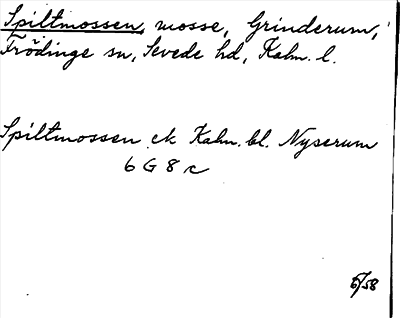 Spiltmossen, mosse, Grinderum,
Frödinge sn, Sevede hd, Kalm. l.
Spiltmossen ek Kalm. bl. Nyserum
6 G 8 c
6/58